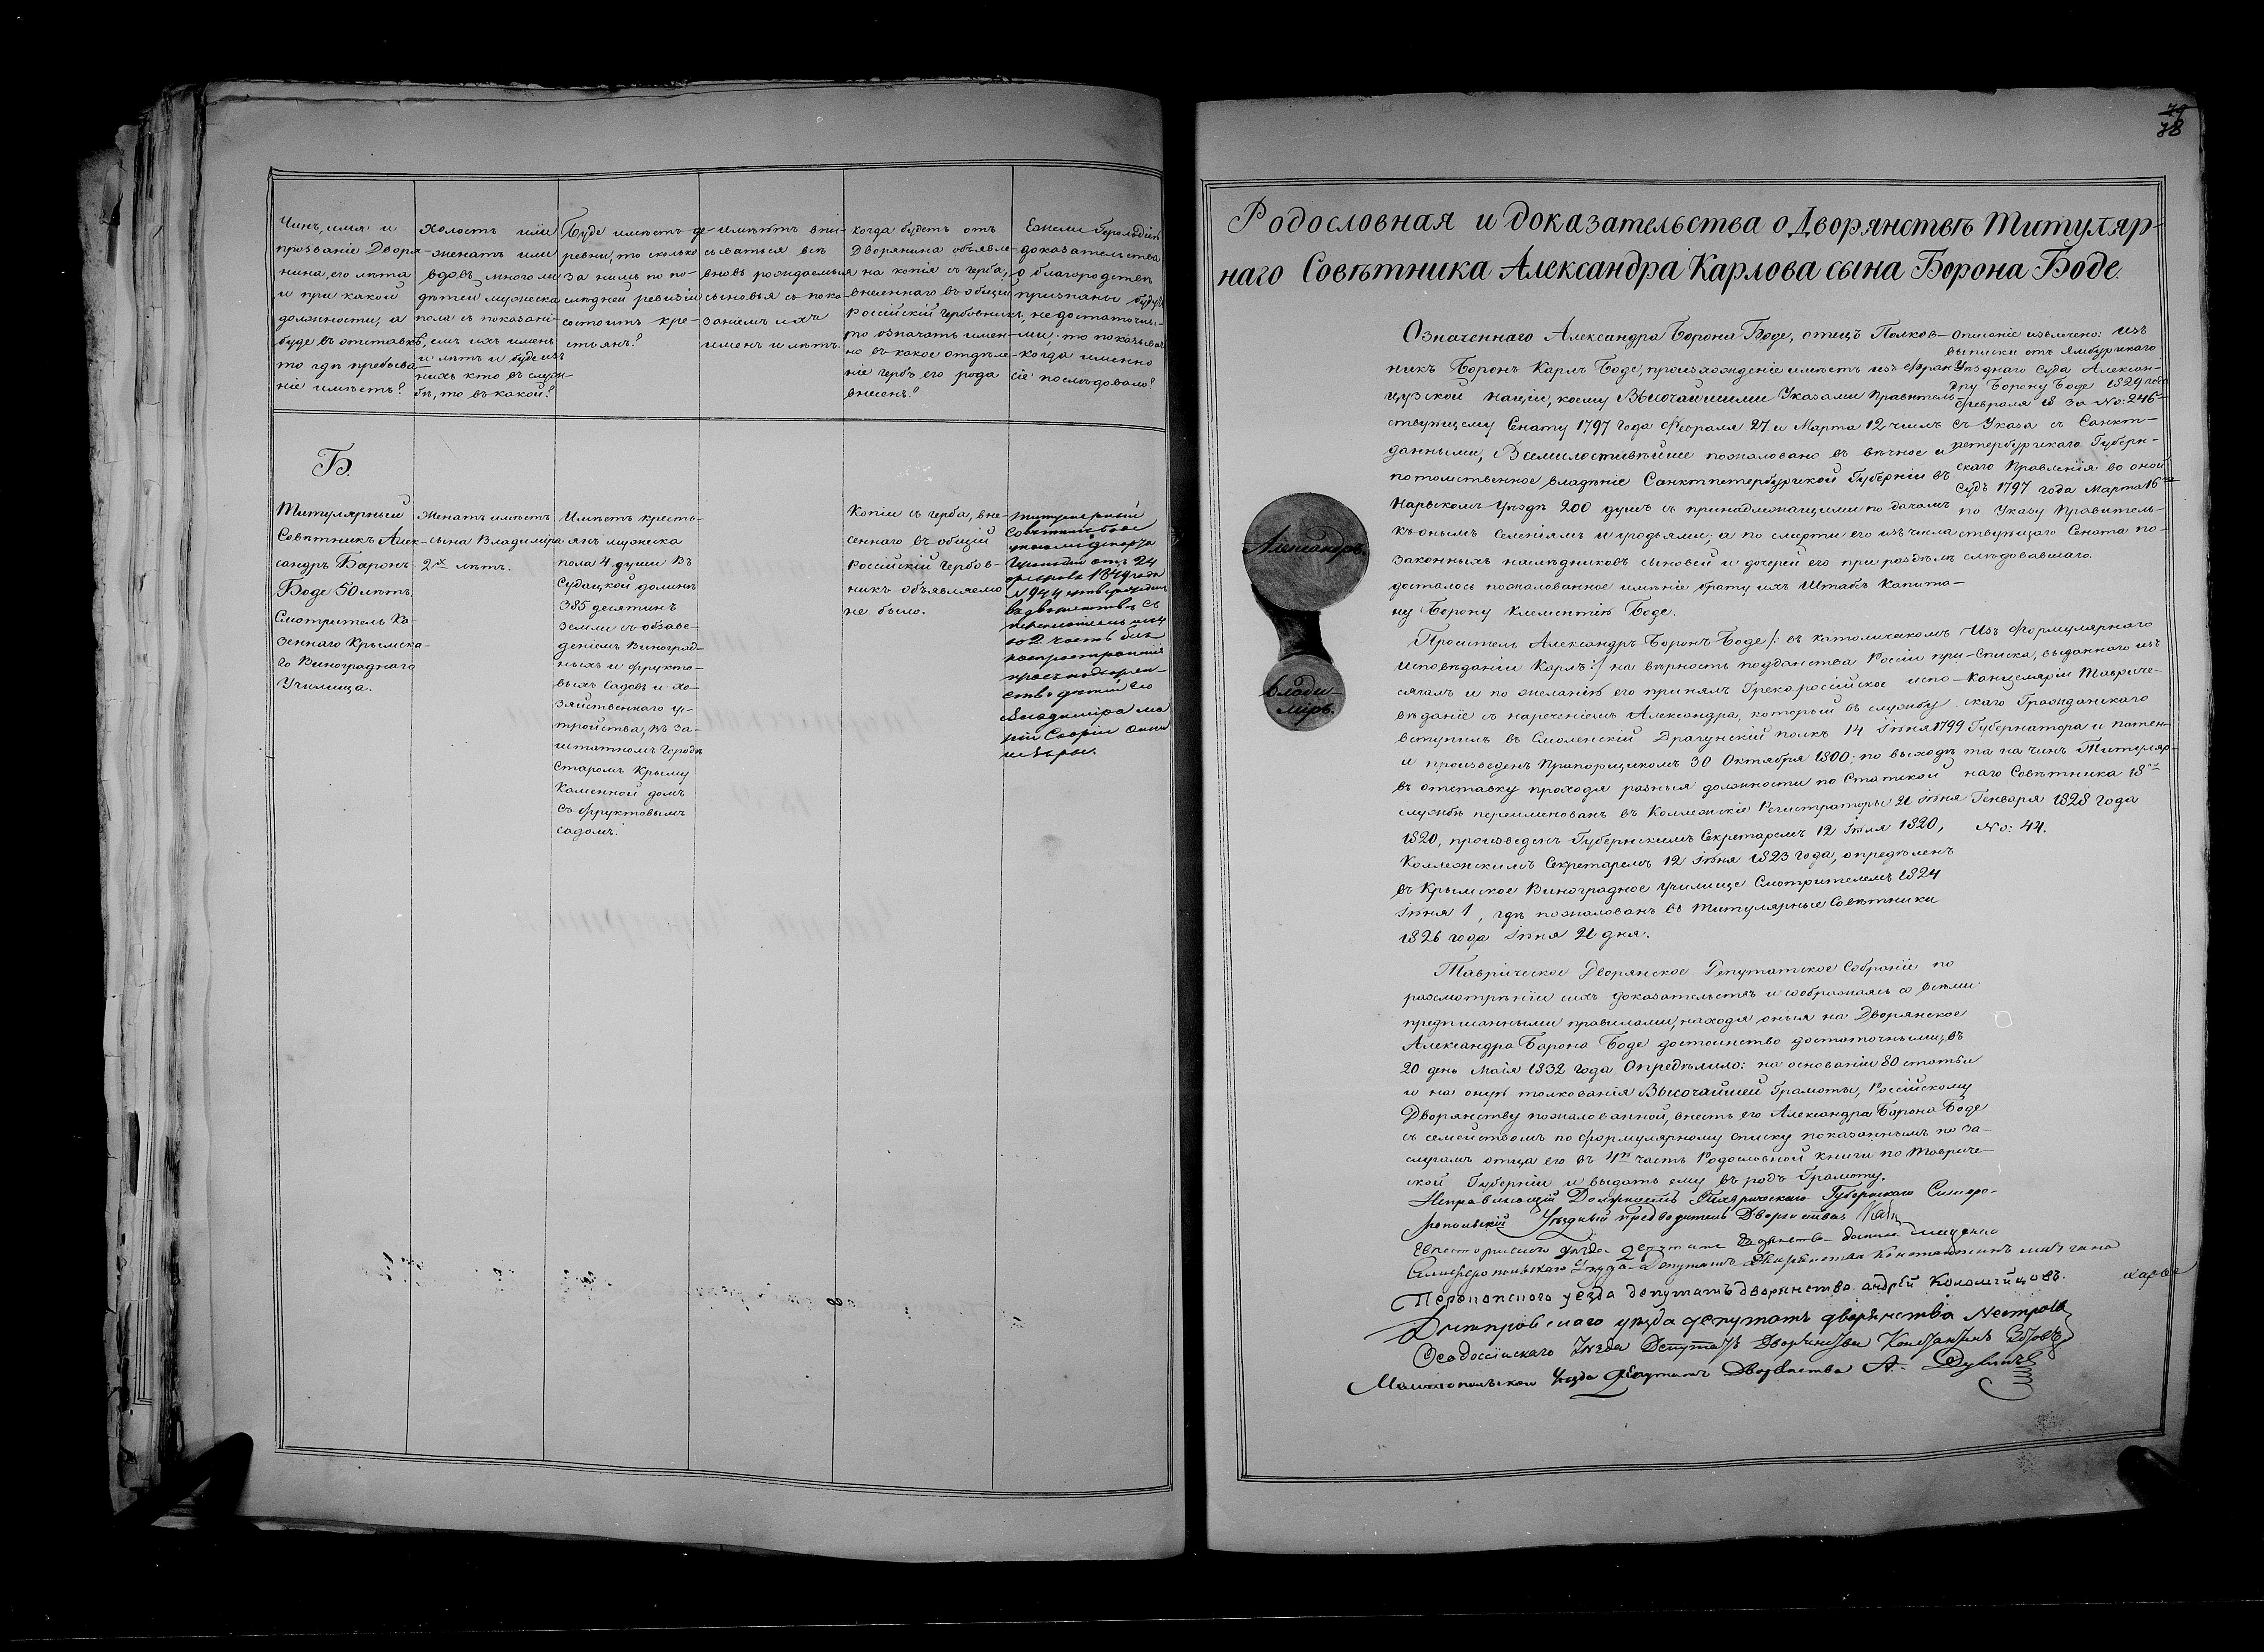 Чинъ, имя и
прозваніе Дворя-
нина, его лѣта
и при какой
должности, а
буде въ отставкѣ,
то гдѣ пребыва-
ніе имѣетъ?
Холостъ или
женатъ или
вдовъ, много ли
дѣтей мужеска
пола съ показані-
емъ ихъ именъ
и лѣтъ и буде изъ
нихъ кто въ служ-
бѣ, то въ какой?
Буде имѣетъ де-
ревни, то сколько
за нимъ по по-
слѣдней ревизіи
состоитъ кре-
стьянъ?
имѣютъ впи-
сываться въ
вновь рождаемыя
сыновья съ пока-
заніемъ ихъ
именъ и лѣтъ.
когда будетъ отъ
Дворянина объявле-
на копія съ герба,
внесеннаго въ общій
Россійскій гербовникъ,
то означать имен-
но въ какое отдѣле-
ніе гербъ его рода
внесенъ?
Ежели Герольдіею
доказательства
о благородствѣ
признаны будутъ
недостаточны-
ми, то показывать
когда именно
сіе послѣдовало?
Б.
Титулярный
Совѣтникъ Алек-
сандръ Баронъ
Боде 50 лѣтъ,
Смотритель Ка-
зеннаго Крымска-
го Винограднаго
Училища.
Женатъ имѣетъ
сына Владиміра
2х лѣтъ.
Имѣетъ кресть-
янъ мужеска
пола 4 души въ
Судацкой долинѣ
385 десятинъ
земли съ обзаве-
деніемъ виноград-
ныхъ и фрукто-
выхъ садовъ и хо-
зяйственнаго у-
стройства, въ за-
штатномъ городѣ
Старомъ Крыму
каменной домъ
съ фруктовымъ
садомъ.
Копіи съ герба, вне-
сеннаго въ общій
Россійскій Гербов-
никъ объявляемо
не было.
Титулярный
Совѣтникъ Боде
указомъ
Герольдіи отъ 24
февраля 1849 года
№ 944 утвержденъ
въ дворянствѣ съ
во 2 часть
дѣтей его
Владиміра Ма
ріи Софіи Анны
и Вѣры.
79
78
Родословная и доказательства о Дворянствѣ Титуляр-
наго Совѣтника Александра Карлова сына Борона Боде.
Означеннаго Александра Борона Боде, отецъ Полков-
никъ Боронъ Карлъ Боде, произхожденіе имѣетъ изъ Фран-
цузской націи, коему Высочайшими Указами Правитель-
ствующему Сенату 1797 года Февраля 27 и Марта 12 числъ
данными, Всемилостивѣйше пожаловано въ вѣчное и
потомственное владѣніе Санктпетербургской Губерніи въ
Нарвскомъ уѣздѣ 200 душъ съ принадлежащими по дачамъ
къ онымъ селеніямъ и угодьями; а по смерти его изъ числа
законныхъ наслѣдниковъ сыновей и дочерей его при раздѣлѣ
досталось пожалованное имѣніе брату ихъ Штабсъ Капита-
ну Борону Клементію Боде.
Описаніе извлечено: изъ
выписки отъ Ямбургскаго
Уѣзднаго Суда Алексан-
дру Борону Боде 1829 года
Февраля 18 за No: 246м
съ Указа съ Санкт-
петербургскаго Губерн-
скаго Правленія во оной
Судъ 1797 года Марта 16го
по Указу Правитель-
ствующаго Сената по-
слѣдовавшаго.
Александръ.
Влади-
миръ.
Проситель Александръ Боронъ Боде /: въ католическомъ
исповѣданіи Карлъ :/ на вѣрность подданства Россіи при-
сягалъ и по желанію его принялъ Грекороссійское испо-
вѣданіе съ нареченіемъ Александра, который въ службу
вступилъ въ Смоленскій Драгунскій полкъ 14 Іюня 1799
и произведенъ Прапорщикомъ 30 Октября 1800; по выходѣ
въ отставку проходя разныя должности по Статской
службѣ переименованъ въ Коллежскіе Регистраторы 21 Іюня
1820, произведенъ Губернскимъ Секретаремъ 12 Іюля 1820,
Коллежскимъ Секретаремъ 12 Іюня 1823 года, опредѣленъ
въ Крымское Виноградное училище Смотрителемъ 1824
Іюня 1, гдѣ пожалованъ въ Титулярные Совѣтники
1826 года Іюня 21 дня.
Изъ Формулярнаго
Списка, выданнаго изъ
Канцеляріи Тавриче-
скаго Гражданскаго
Губернатора и патен-
та на чинъ Титуляр-
наго Совѣтника 18го
Генваря 1828 года
No: 44.
Таврическое Дворянское Депутатское Собраніе по
разсмотрѣніи сихъ доказательствъ и сообразясь со всѣми
предписанными правилами, находя оныя на Дворянское
Александра Барона Боде достоинство достаточными, въ
20 день Маія 1832 года Опредѣлило: на основаніи 80 статьи
и на оную толкованія Высочайшей Грамоты, Россійскому
Дворянству пожалованной, внесть его Александра Барона Боде
съ семействомъ по формулярному списку показаннымъ по за-
слугамъ отца его въ 4ю часть Родословной книги по Тавриче-
ской Губерніи и выдать ему въ родъ Грамоту.
Исправляющій Должность Таврическаго Губернскаго Симфе-
ропольскій Уѣздный предводитель Дворянства
Евпаторійскаго уѣзда депутатъ дворянства
Симферопольскаго Уѣзда Депутатъ Дворянства Константинъ
Перекопскаго уѣзда депутатъ дворянства андрѣй Коломійцовъ.
Днепровскаго уѣзда депутатъ дворянства
Ѳеодосійскаго Уѣзда Депутатъ Дворянства Константинъ
Мелитопольскаго Уѣзда Депутатъ Дворянства А.